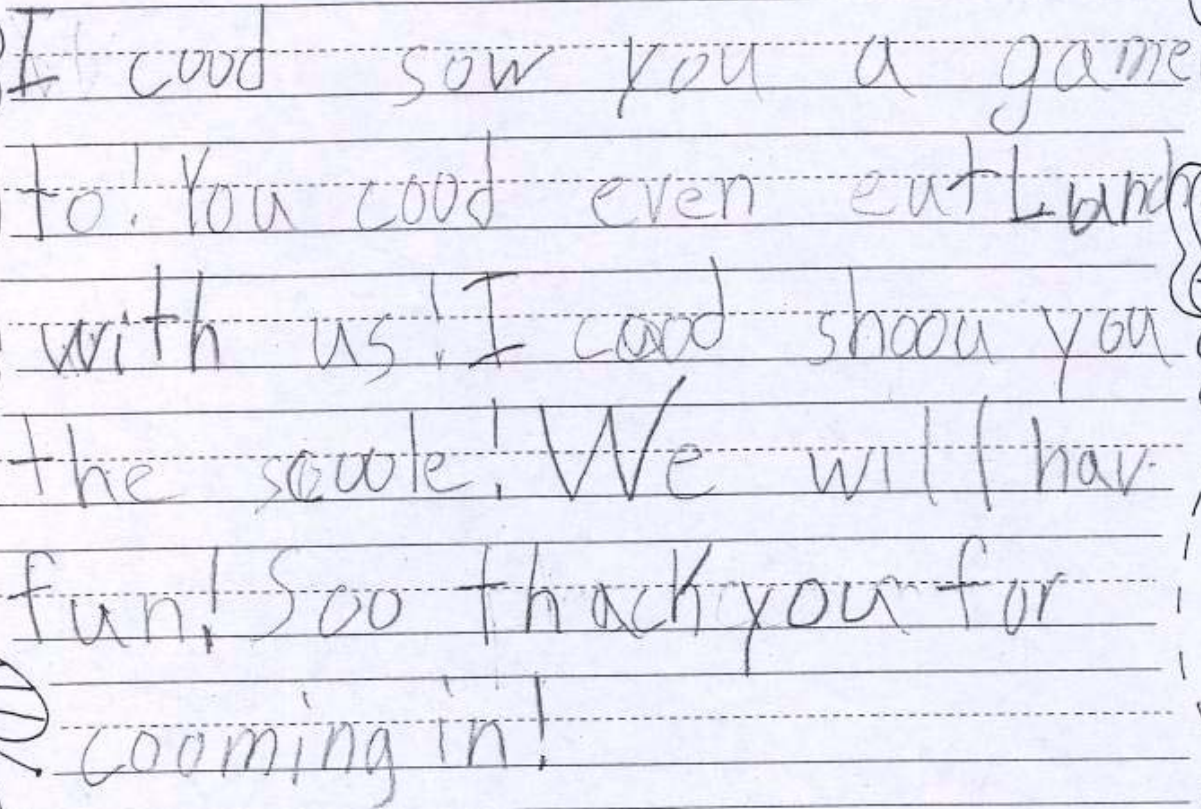 I cood sow you a game
to! You cood even eat Lunch
with us! I cood shoou you
the scoole! We will hav
fun! Soo thack you for
cooming in!